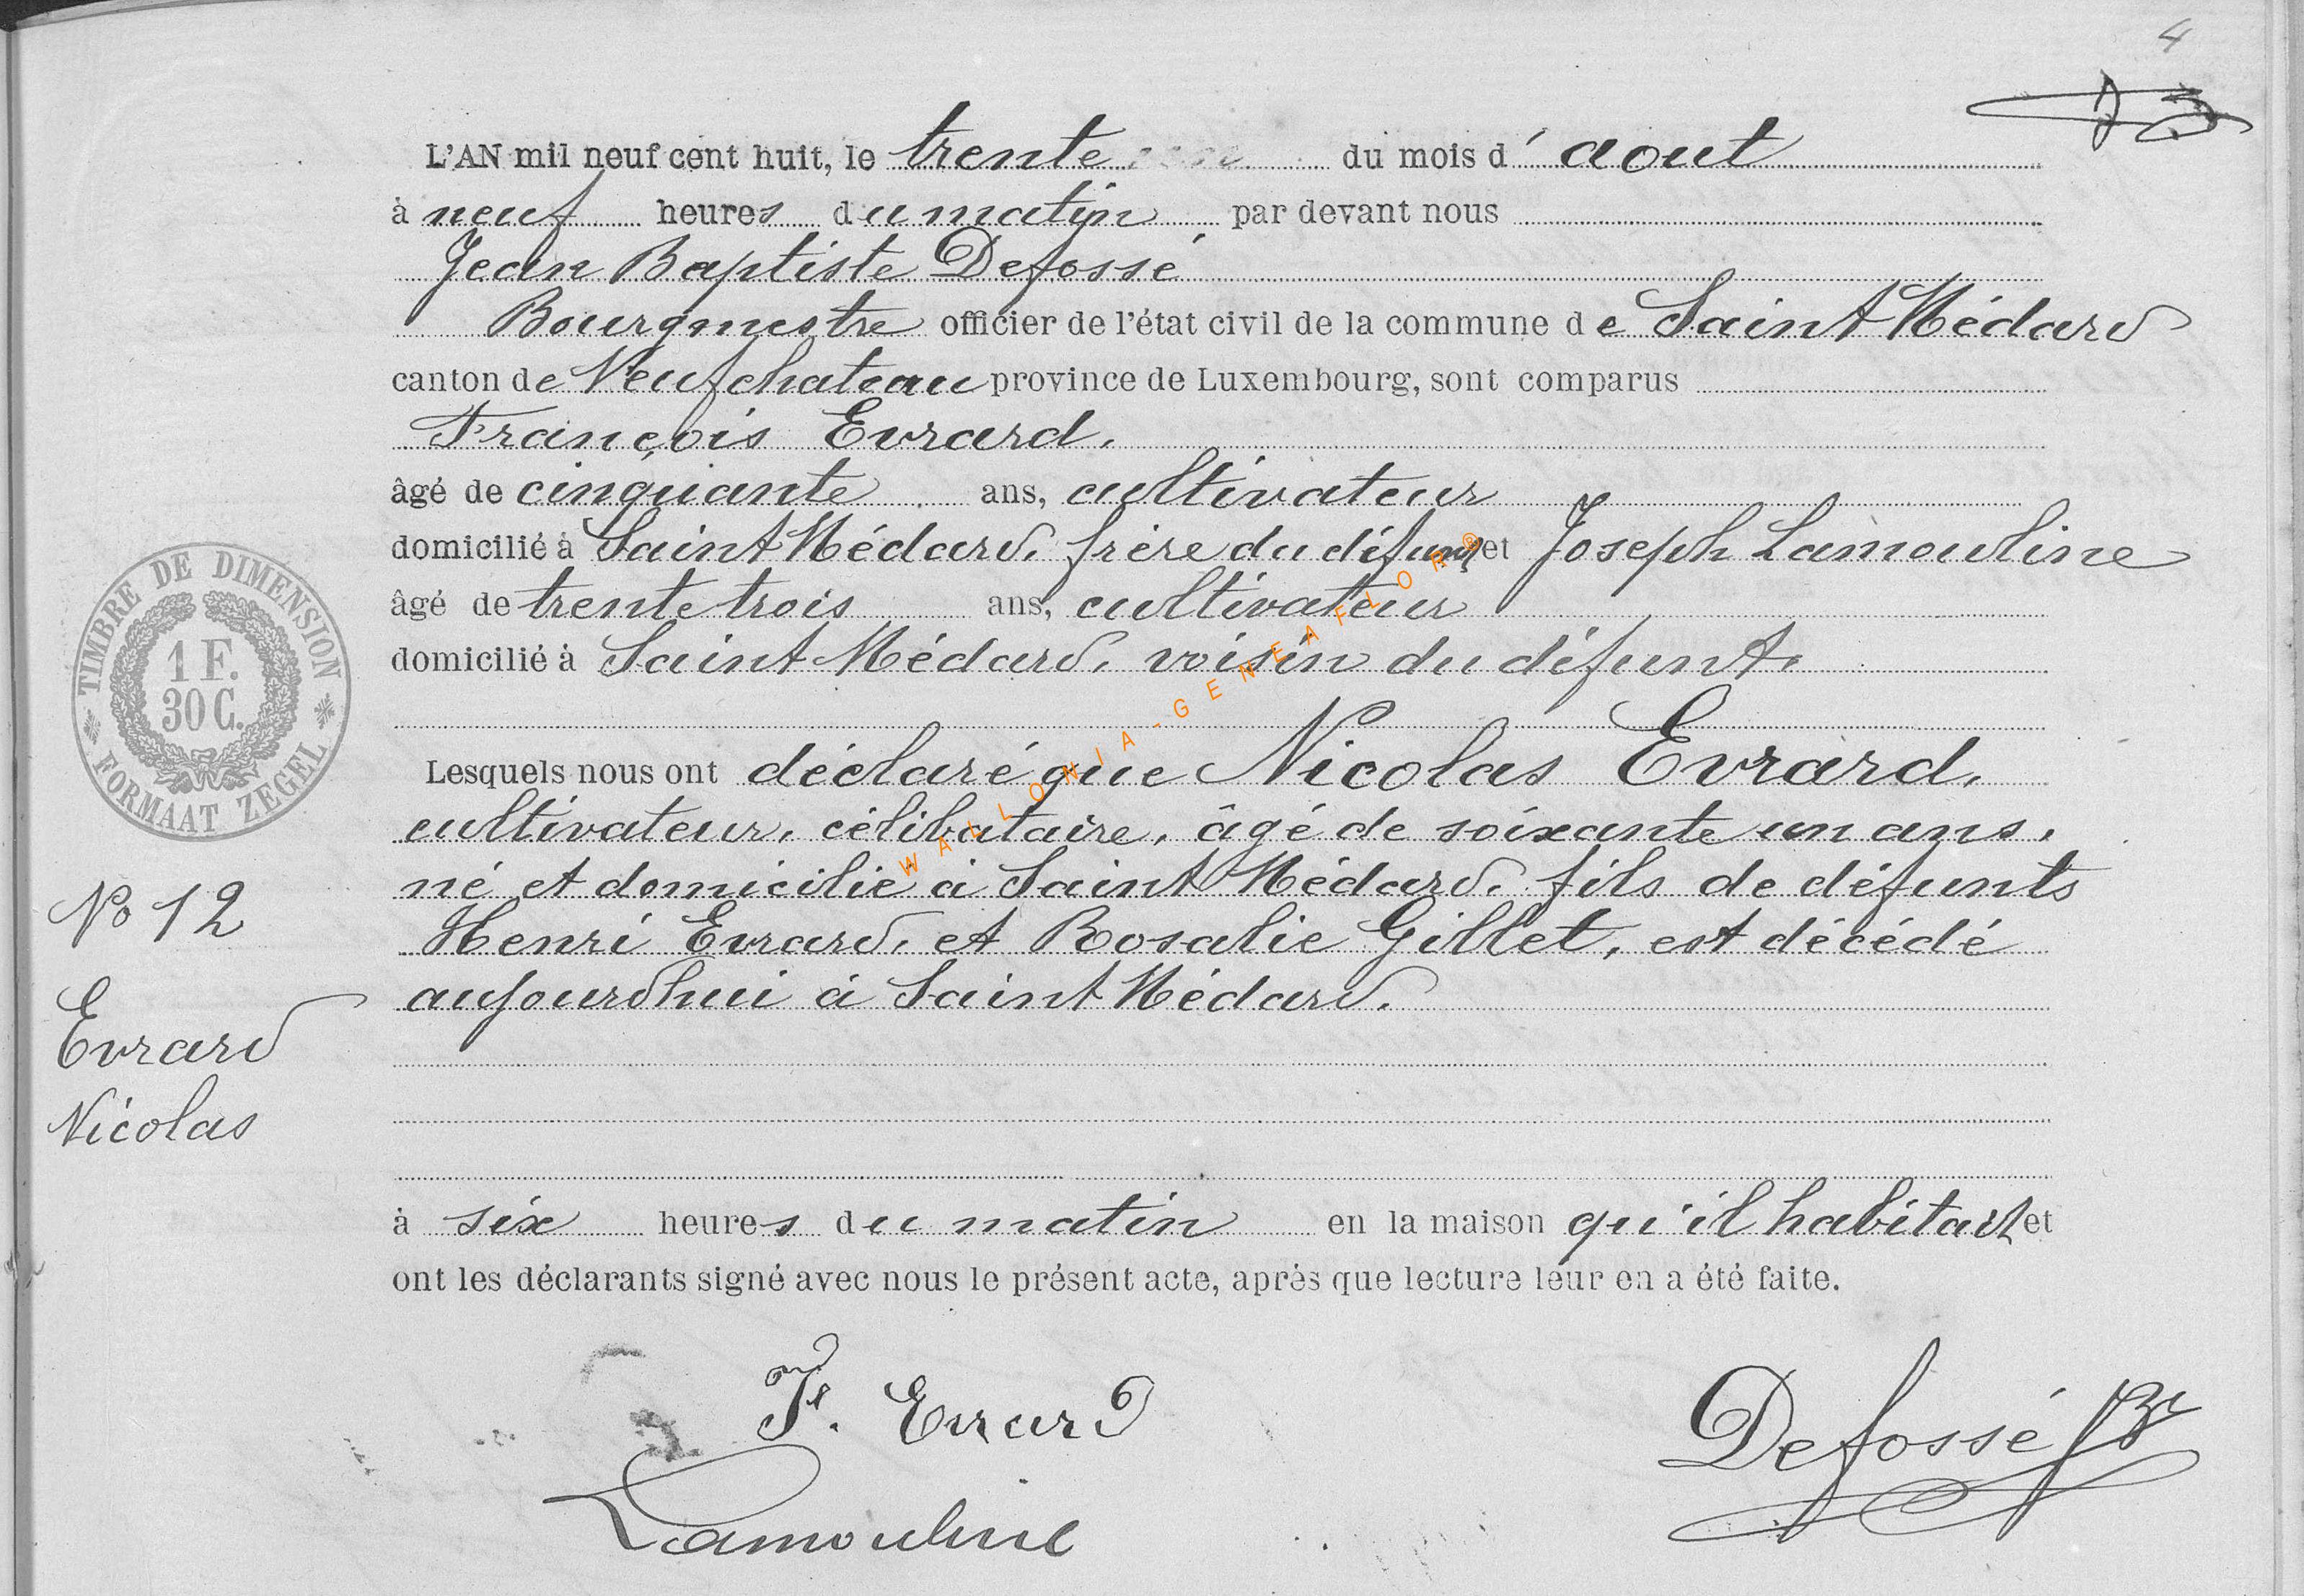 4
L'AN mil neuf cent huit, le trente du mois d' aout
à neuf heures du matin par devant nous
Jean Baptiste Defossé
Bourgmestre officier de l'état civil de la commune de Saint Médard
canton de Neufchateau province de Luxembourg, sont comparus
François Evrard,
âgé de cinquante ans, cultivateur
domicilié à Saint Médard, frère du défunt et Joseph Lamouline
âgé de trente trois ans, cultivateur
domicilié à Saint Médard, voisin du défunt,
Lesquels nous ont déclaré que Nicolas Evrard,
cultivateur, célibataire, âgé de soixante un ans,
né et domicilié à Saint Médard, fils de défunts
Henri Evrard, et Rosalie Gillet, est décédé
aujourdhui à Saint Médard.
à six heures du matin en la maison qu'il habitait et
ont les déclarants signé avec nous le présent acte, après que lecture leur en a été faite.
TIMBRE DE DIMENSION
1 F.
30 C.
FORMAAT ZEGEL
No 12
Evrard
Nicolas
WALLONIA-GENEAFLOR®
Evrard
Lamouline
Defossé